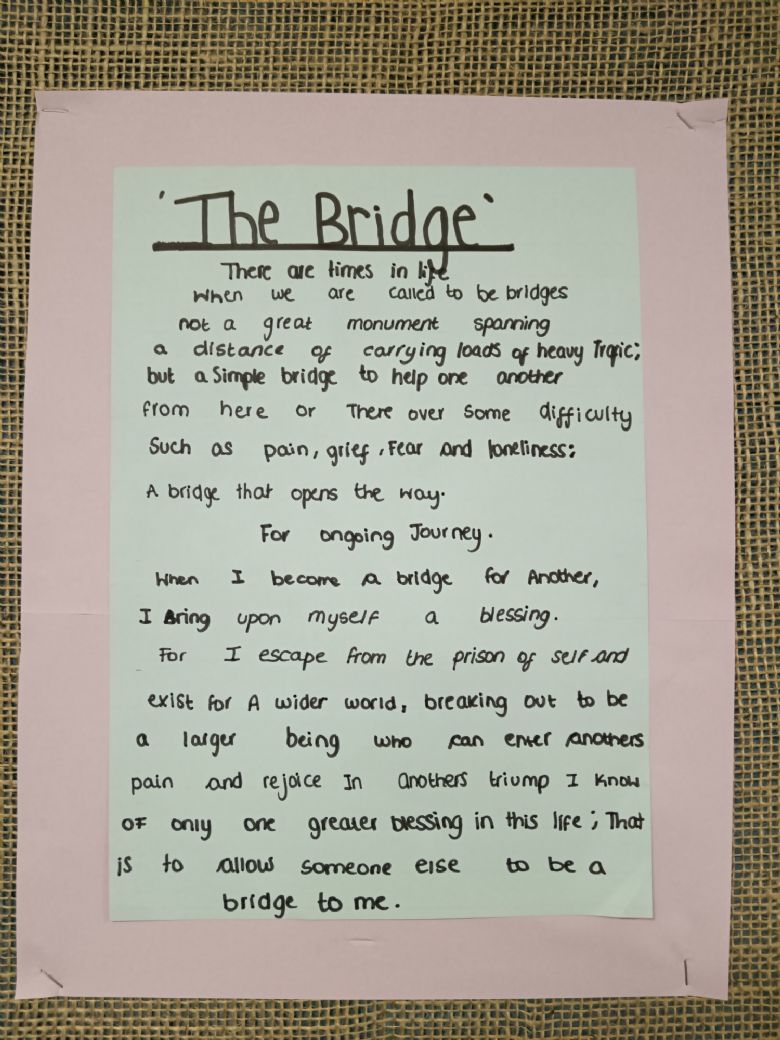 'The Bridge'
There are times in life
when we are called to be bridges
not a great monument spanning
a distance of carrying loads of heavy Trafic;
but a Simple bridge to help one another
from here or There over some difficulty
Such as pain, grief, Fear and loneliness;
A bridge that opens the way.
For ongoing Journey.
When I become a bridge for Another,
I Bring upon myself a blessing.
For I escape from the prison of self and
exist for A wider world, breaking out to be
a larger being who can enter anothers
pain and rejoice In anothers triump I know
OF only one greater blessing in this life; That
is to allow someone else to be a
bridge to me.